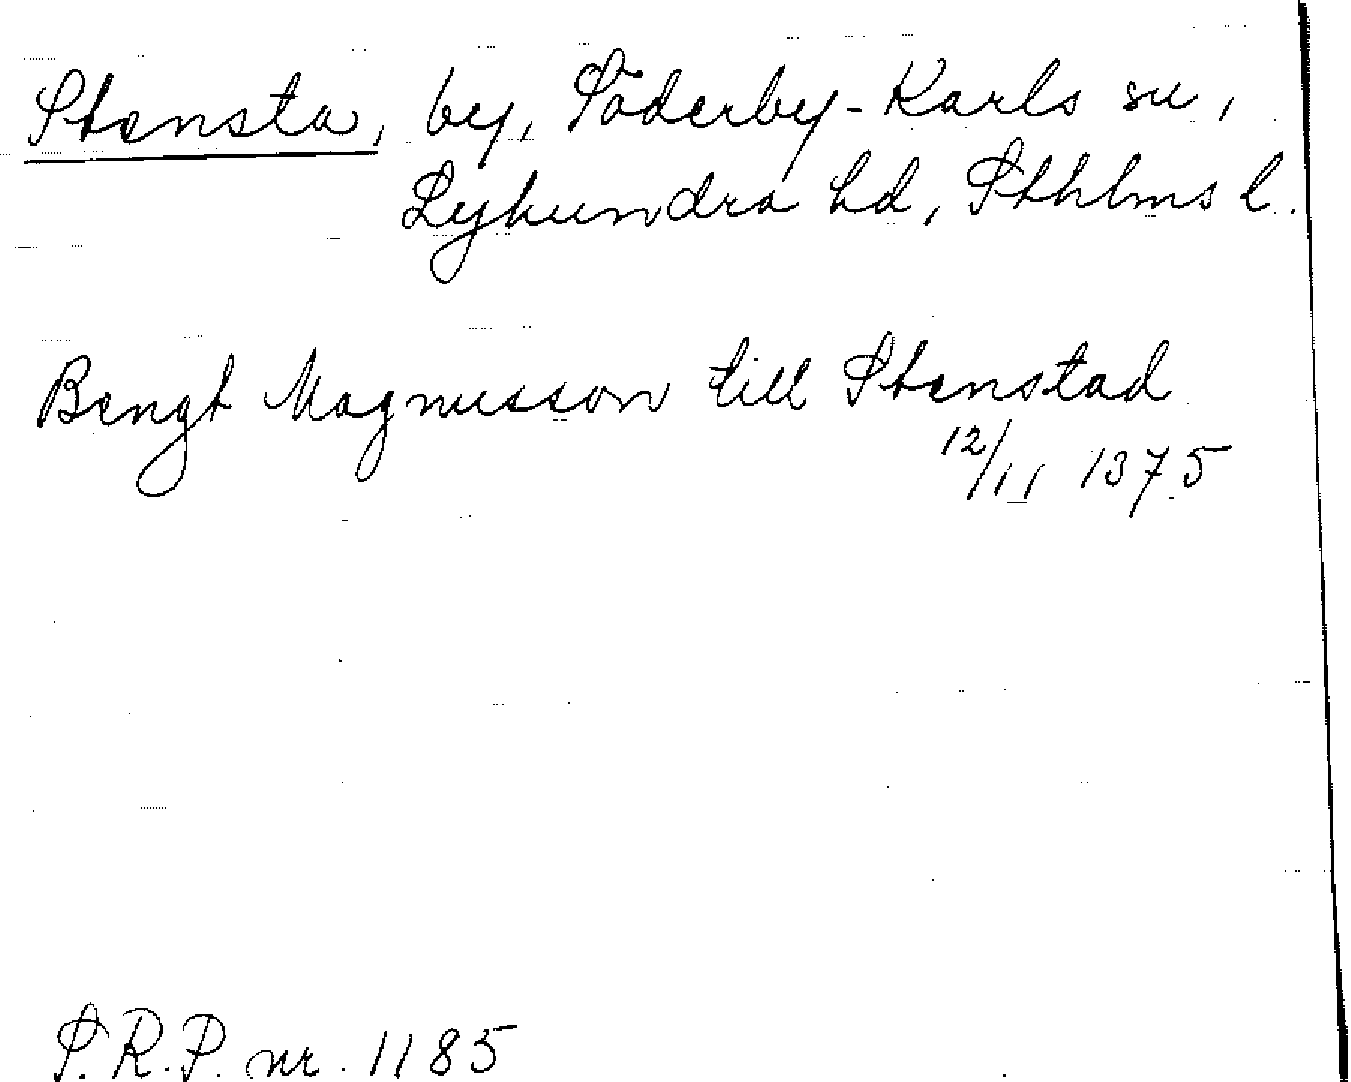 Stensta, by, Söderby-Karls sn,
Lyhundra hd, Sthlms l.
Bengt Magnusson till Stenstad
12/11 1375
S.R.P. nr. 1185